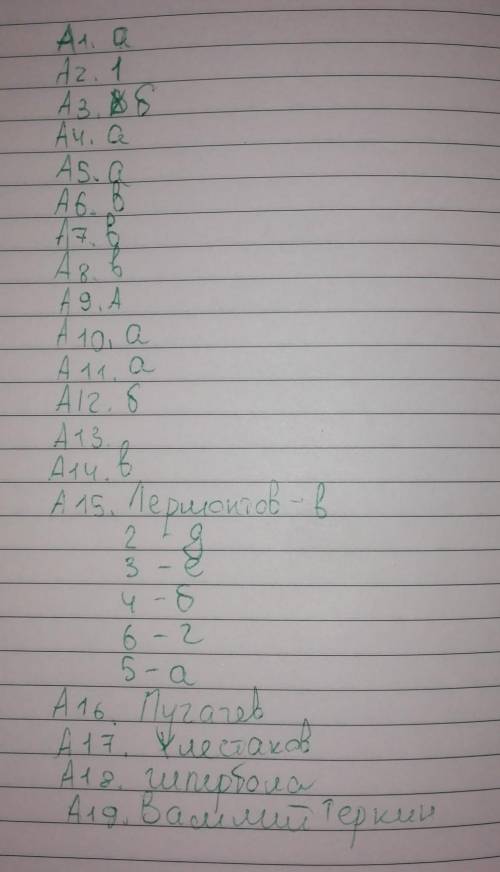 А1. а
А2. 1
А3. б
А4. а
А5. а
А6. в
А7. в
А8. в
А9. А
А10. а
А11. а
А12. б
А13.
А14. в
А15. Лермонтов - в
2 - д
3 - е
4 - б
6 - г
5 - а
А16. Пугачев
А17. Хлестаков
А18. гипербола
А19. Василий Теркин